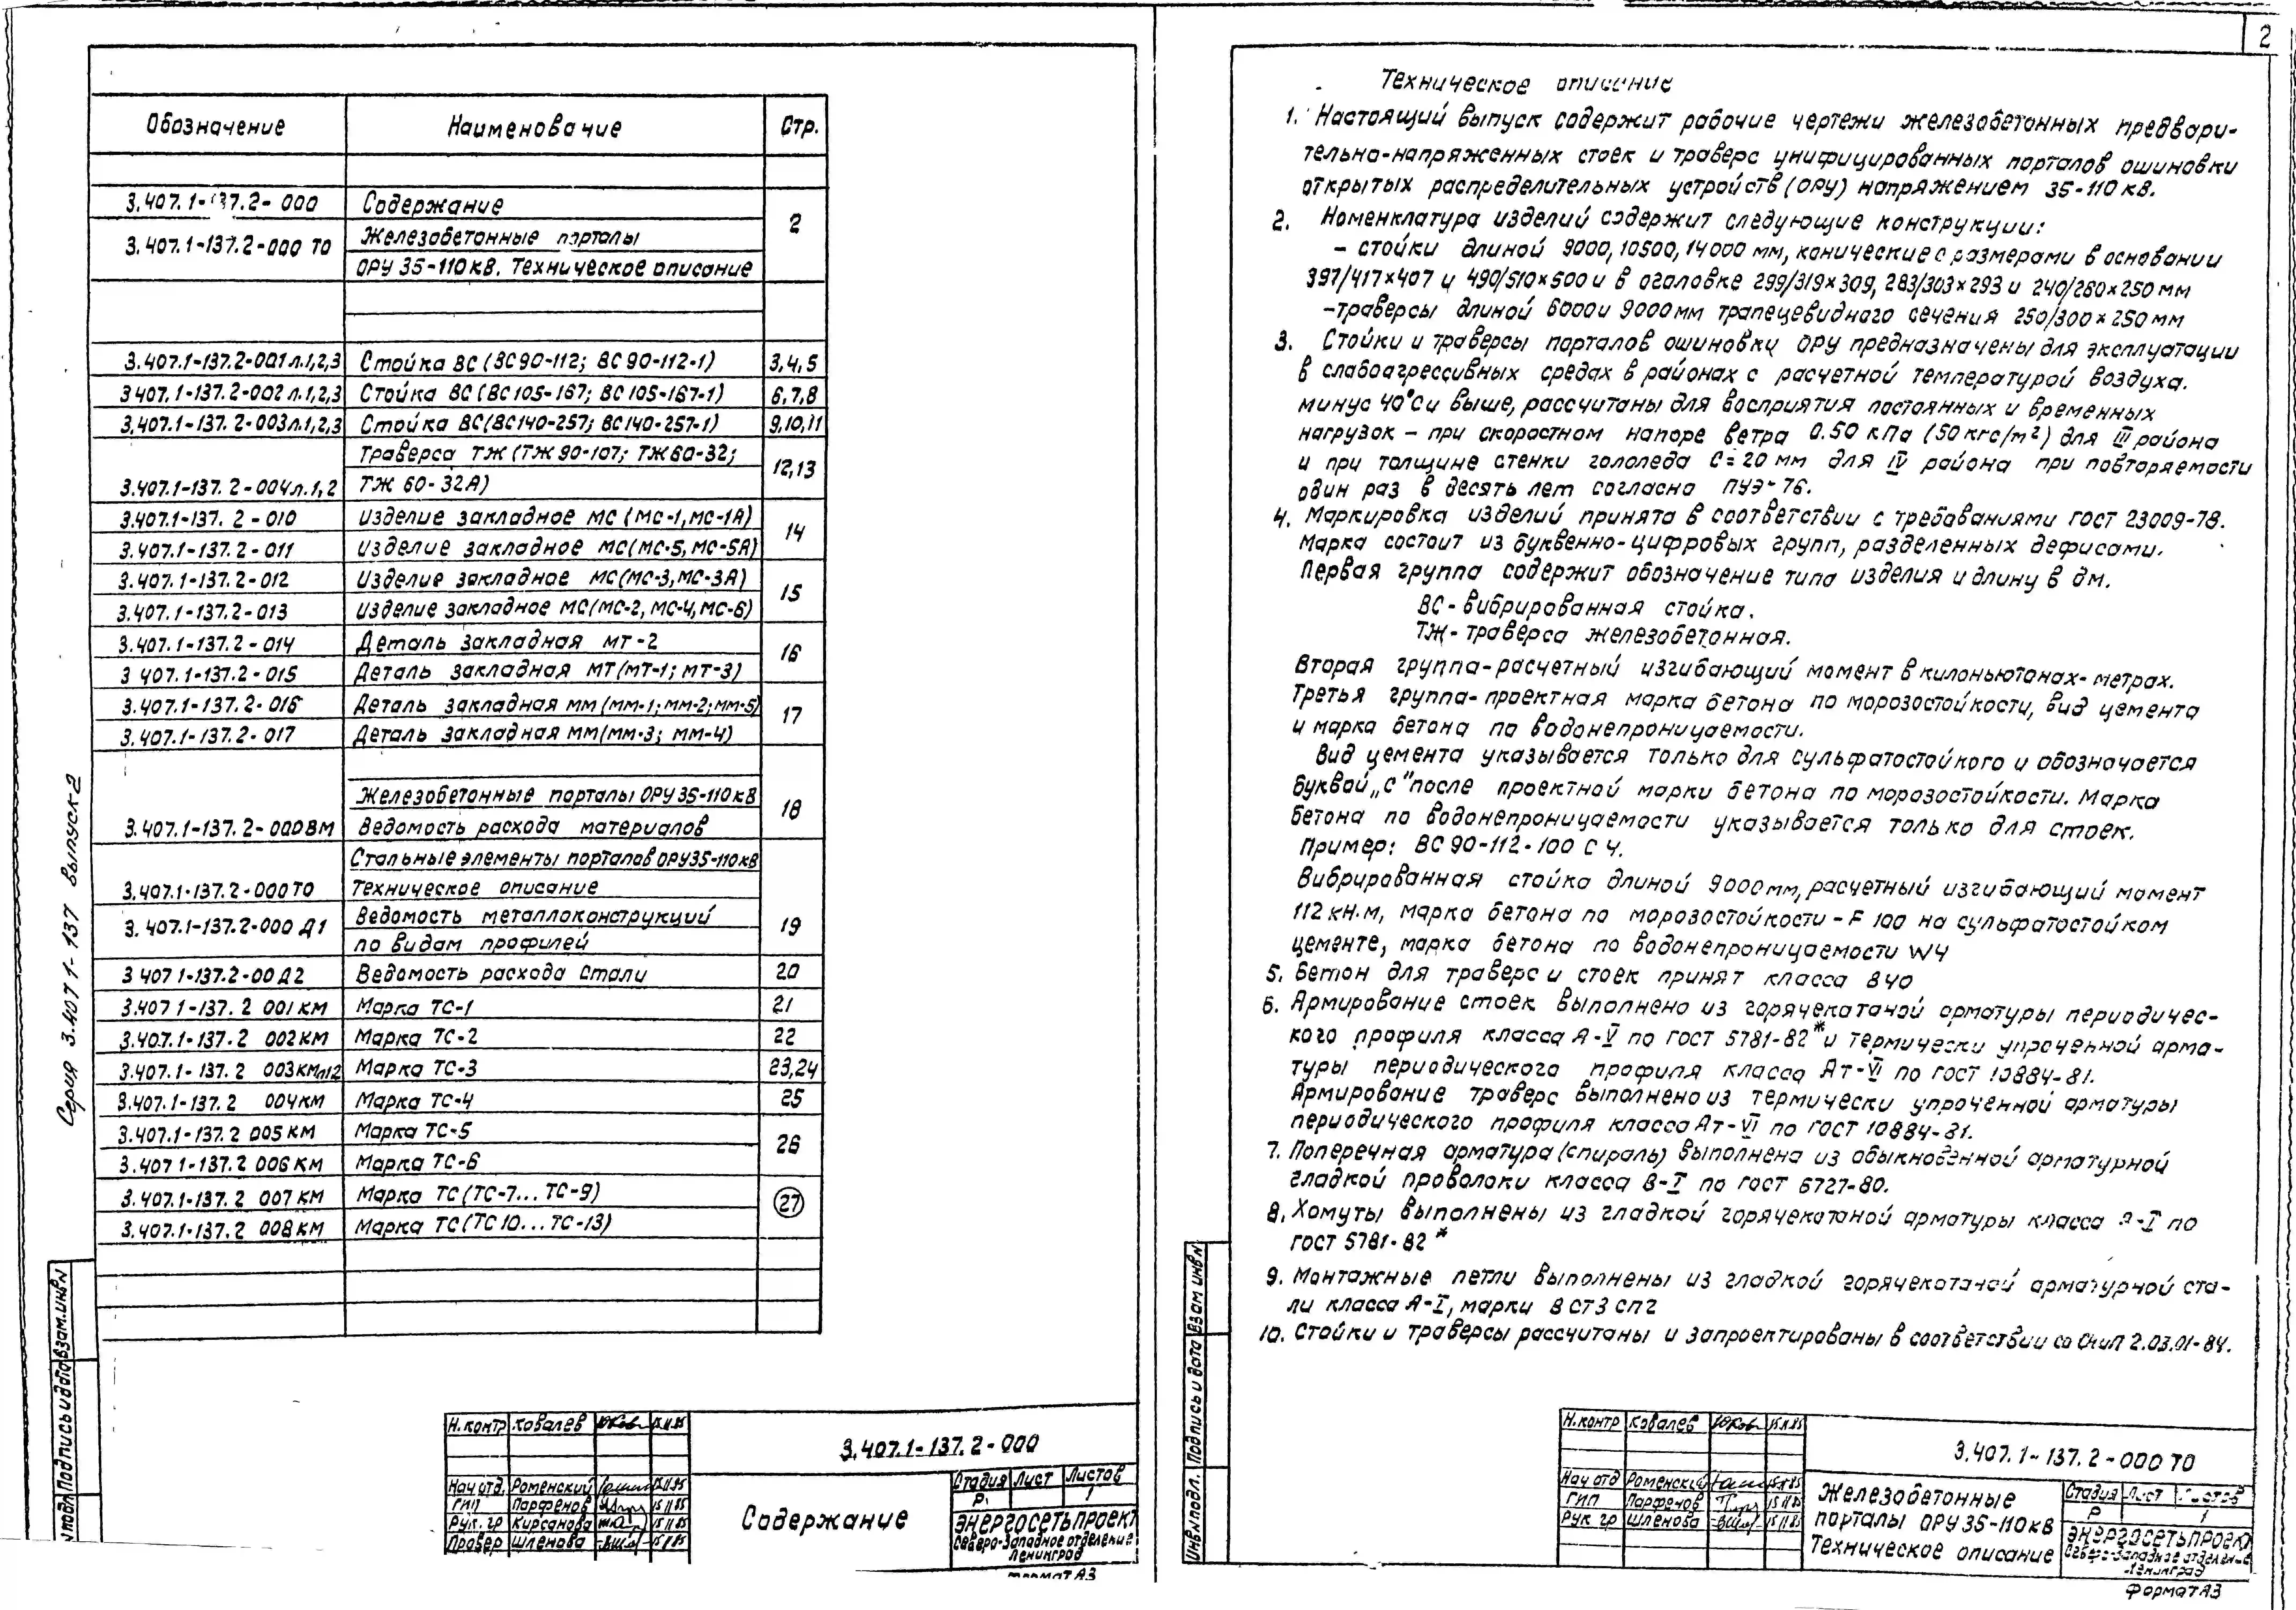 Обозначение Наименование Стр.
3.407.1-137.2-000 Содержание 2
3.407.1-137.2-000 ТО Железобетонные порталы
ОРУ 35-110кВ. Техническое описание
3.407.1-137.2-001л.1,2,3 Стойка ВС (ВС90-112; ВС90-112-1) 3,4,5
3 407.1-137.2-002 л.1,2,3 Стойка ВС (ВС105-167; ВС105-167-1) 6,7,8
3.407.1-137.2-003л.1,2,3 Стойка ВС(ВС140-257; ВС140-257-1) 9,10,11
Траверса ТЖ (ТЖ90-107; ТЖ60-32; 12,13
3.407.1-137.2-004л.1,2 ТЖ 60-32А)
3.407.1-137.2-010 Изделие закладное МС (МС-1,МС-1А) 14
3.407.1-137.2-011 Изделие закладное МС(МС-5,МС-5А)
3.407.1-137.2-012 Изделие закладное МС(МС-3,МС-3А) 15
3.407.1-137.2-013 Изделие закладное МС(МС-2,МС-4,МС-6)
3.407.1-137.2-014 Деталь закладная МТ-2 16
3 407.1-137.2-015 Деталь закладная МТ(МТ-1; МТ-3)
3.407.1-137.2-016 Деталь закладная ММ (ММ-1; ММ-2; ММ-5) 17
3.407.1-137.2-017 Деталь закладная ММ(ММ-3; ММ-4)
Железобетонные порталы ОРУ 35-110кВ 18
3.407.1-137.2-000ВМ Ведомость расхода материалов
Стальные элементы порталов ОРУ35-110кВ
3.407.1-137.2-000ТО Техническое описание 19
3.407.1-137.2-000 Д1 Ведомость металлоконструкций
по видам профилей
3 407 1-137.2-00 Д2 Ведомость расхода стали 20
3.407 1-137.2 001КМ Марка ТС-1 21
3.407.1-137.2 002КМ Марка ТС-2 22
3.407.1-137.2 003КМл12 Марка ТС-3 23,24
3.407.1-137.2 004КМ Марка ТС-4 25
3.407.1-137.2 005КМ Марка ТС-5 26
3.407 1-137.2 006КМ Марка ТС-6
3.407.1-137.2 007КМ Марка ТС(ТС-7...ТС-9) 27
3.407.1-137.2 008КМ Марка ТС(ТС10...ТС-13)
Серия 3.407 1-137 Выпуск-2
Взам.инв№
Подпись и дата
Н.контр Ковалев
3.407.1-137.2-000
Нач отд. Роменский
ГИП Парфенов 15 11 85
Рук.гр Кирсанова 15 11 85
Провер Шленова
Содержание
Стадия Лист Листов
Р 1
ЭНЕРГОСЕТЬПРОЕКТ
Северо-Западное отделение
Ленинград
Формат А3
2
Техническое описание
1. Настоящий выпуск содержит рабочие чертежи железобетонных предвари-
тельно-напряженных стоек и траверс унифицированных порталов ошиновки
открытых распределительных устройств (ОРУ) напряжением 35-110кВ.
2. Номенклатура изделий содержит следующие конструкции:
- стойки длиной 9000, 10500, 14000 мм, конические с размерами в основании
397/417×407 и 490/510×500 и в оголовке 299/319×309, 283/303×293 и 240/260×250 мм
-траверсы длиной 6000 и 9000мм трапецевидного сечения 250/300×250 мм
3. Стойки и траверсы порталов ошиновки ОРУ предназначены для эксплуатации
в слабоагрессивных средах в районах с расчетной температурой воздуха.
минус 40°С и выше, рассчитаны для восприятия постоянных и временных
нагрузок - при скоростном напоре ветра 0.50 кПа (50кгс/м²) для III района
и при толщине стенки гололеда С=20мм для IV района при повторяемости
один раз в десять лет согласно ПУЭ-76.
4. Маркировка изделий принята в соответствии с требованиями ГОСТ 23009-78.
Марка состоит из буквенно-цифровых групп, разделенных дефисами.
Первая группа содержит обозначение типа изделия и длину в дм.
ВС - вибрированная стойка.
ТЖ - траверса железобетонная.
Вторая группа-расчетный изгибающий момент в килоньютонах-метрах.
Третья группа-проектная марка бетона по морозостойкости, вид цемента
и марка бетона по водонепроницаемости.
Вид цемента указывается только для сульфатостойкого и обозначается
буквой „С" после проектной марки бетона по морозостойкости. Марка
бетона по водонепроницаемости указывается только для стоек.
Пример: ВС 90-112-100 С 4.
Вибрированная стойка длиной 9000мм, расчетный изгибающий момент
112 кН·м, марка бетона по морозостойкости - F 100 на сульфатостойком
цементе, марка бетона по водонепроницаемости W4
5. Бетон для траверс и стоек принят класса В40
6. Армирование стоек выполнено из горячекатаной арматуры периодичес-
кого профиля класса А-V по ГОСТ 5781-82* и термически упроченной арма-
туры периодического профиля класса Ат-VI по ГОСТ 10884-81.
Армирование траверс выполнено из термически упроченной арматуры
периодического профиля класса Ат-VI по ГОСТ 10884-81.
7. Поперечная арматура (спираль) выполнена из обыкновенной арматурной
гладкой проволоки класса В-I по ГОСТ 6727-80.
8. Хомуты выполнены из гладкой горячекатаной арматуры класса А-I по
ГОСТ 5781-82*
9. Монтажные петли выполнены из гладкой горячекатаной арматурной ста-
ли класса А-I, марки ВСт3сп2
10. Стойки и траверсы рассчитаны и запроектированы в соответствии со СНиП 2.03.01-84.
Взам инв№
Подпись и дата
Инв.№подл.
Н.контр Ковалев
3.407.1-137.2-000 ТО
Нач отд Роменский
ГИП Парфенов
Рук гр Шленова
Железобетонные
порталы ОРУ 35-110кВ
Техническое описание
Стадия Лист Листов
Р 1
ЭНЕРГОСЕТЬПРОЕКТ
Северо-Западное отделение
Ленинград
Формат А3